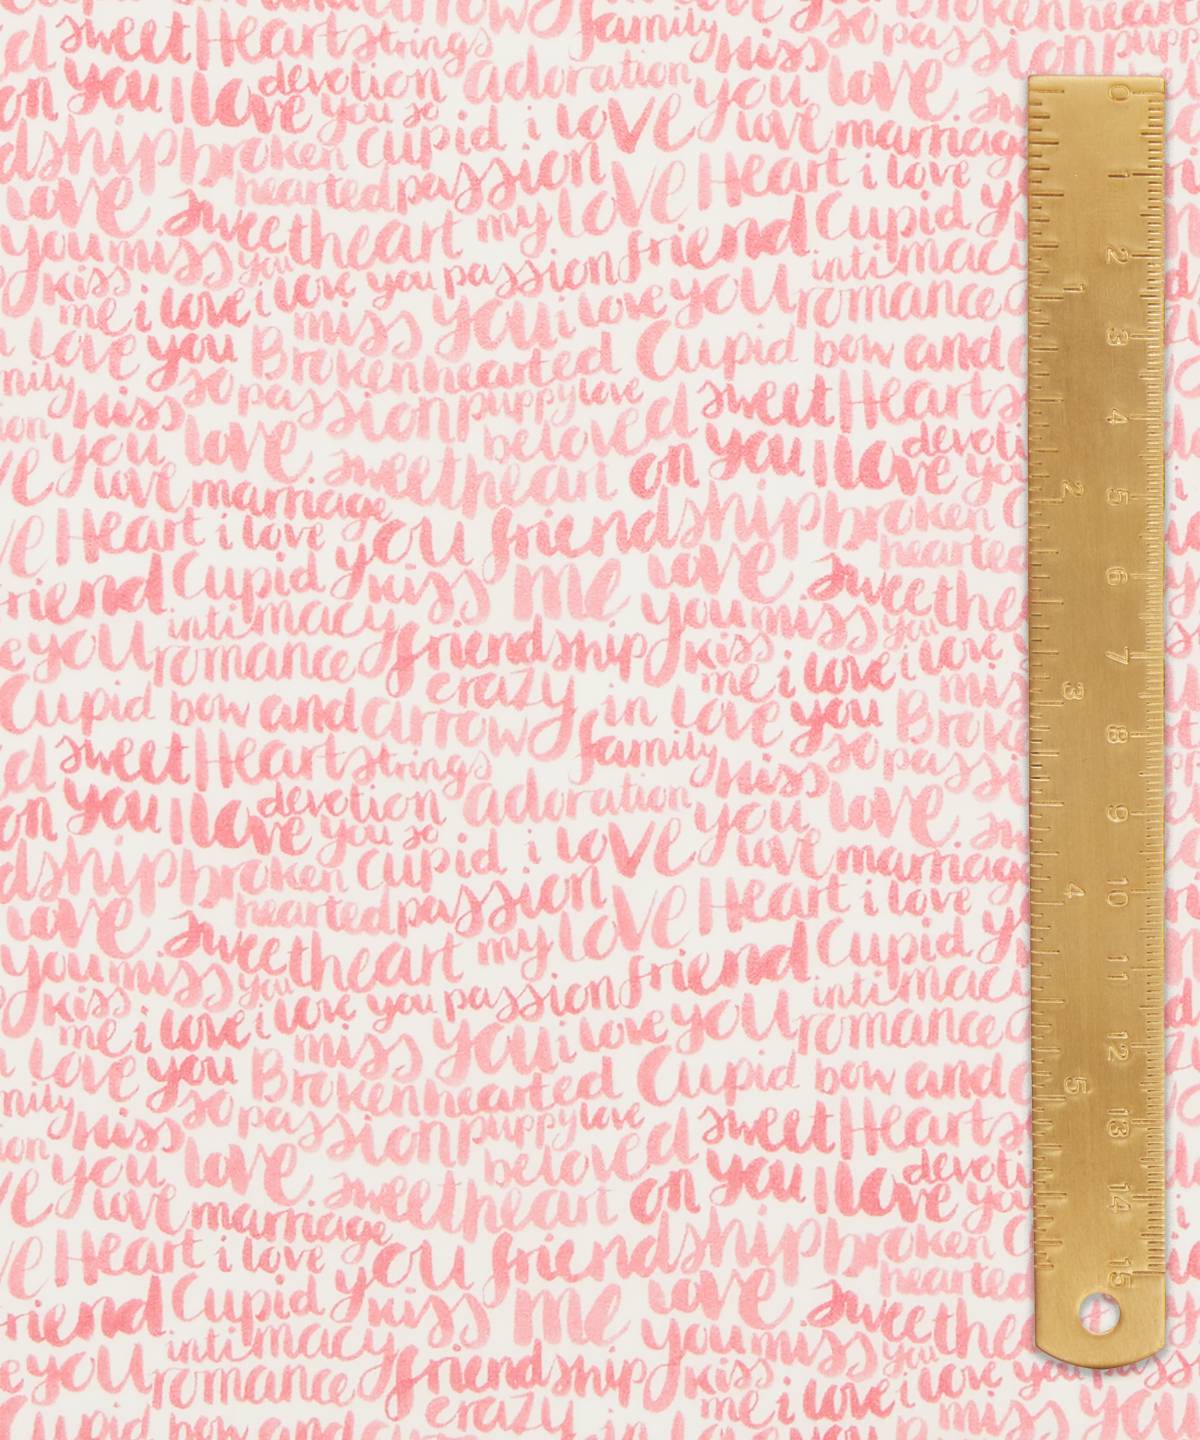 arrow in love you Brokenhearted
sweet Heartstrings family kiss so passion puppy
on you I love devotion you so adoration you love
dship broken hearted Cupid i love you love marriage
love passion Heart i love
sweetheart my love friend Cupid
you miss you intimacy
kiss me i love i love you passion i love you romance
miss you
love you Brokenhearted Cupid bow and
family kiss so passion puppy love sweet Heartstrings
you love beloved on you I love devotion
love marriage sweetheart
Heart i love you friendship broken hearted
friend Cupid kiss me love sweetheart
intimacy you miss you
you romance friendship kiss me i love i love
crazy miss
Cupid bow and arrow in love you Broken
sweet Heartstrings family kiss so passion
on you I love devotion you so adoration you love
dship broken hearted Cupid i love you love marriage
love passion Heart i love
sweetheart my love friend Cupid
you miss you intimacy
kiss me i love i love you passion i love you romance
miss you
love you Brokenhearted Cupid bow and
family kiss so passion puppy love sweet Hearts
you love beloved on you I love devotion
love marriage sweetheart
Heart i love you friendship broken hearted
friend Cupid kiss me love sweetheart
intimacy you miss you
you romance friendship kiss me i love i love you passion
crazy miss you
Cupid bow and arrow in love
0 1 2 3 4 5 6 7 8 9 10 11 12 13 14 15
1 2 3 4 5